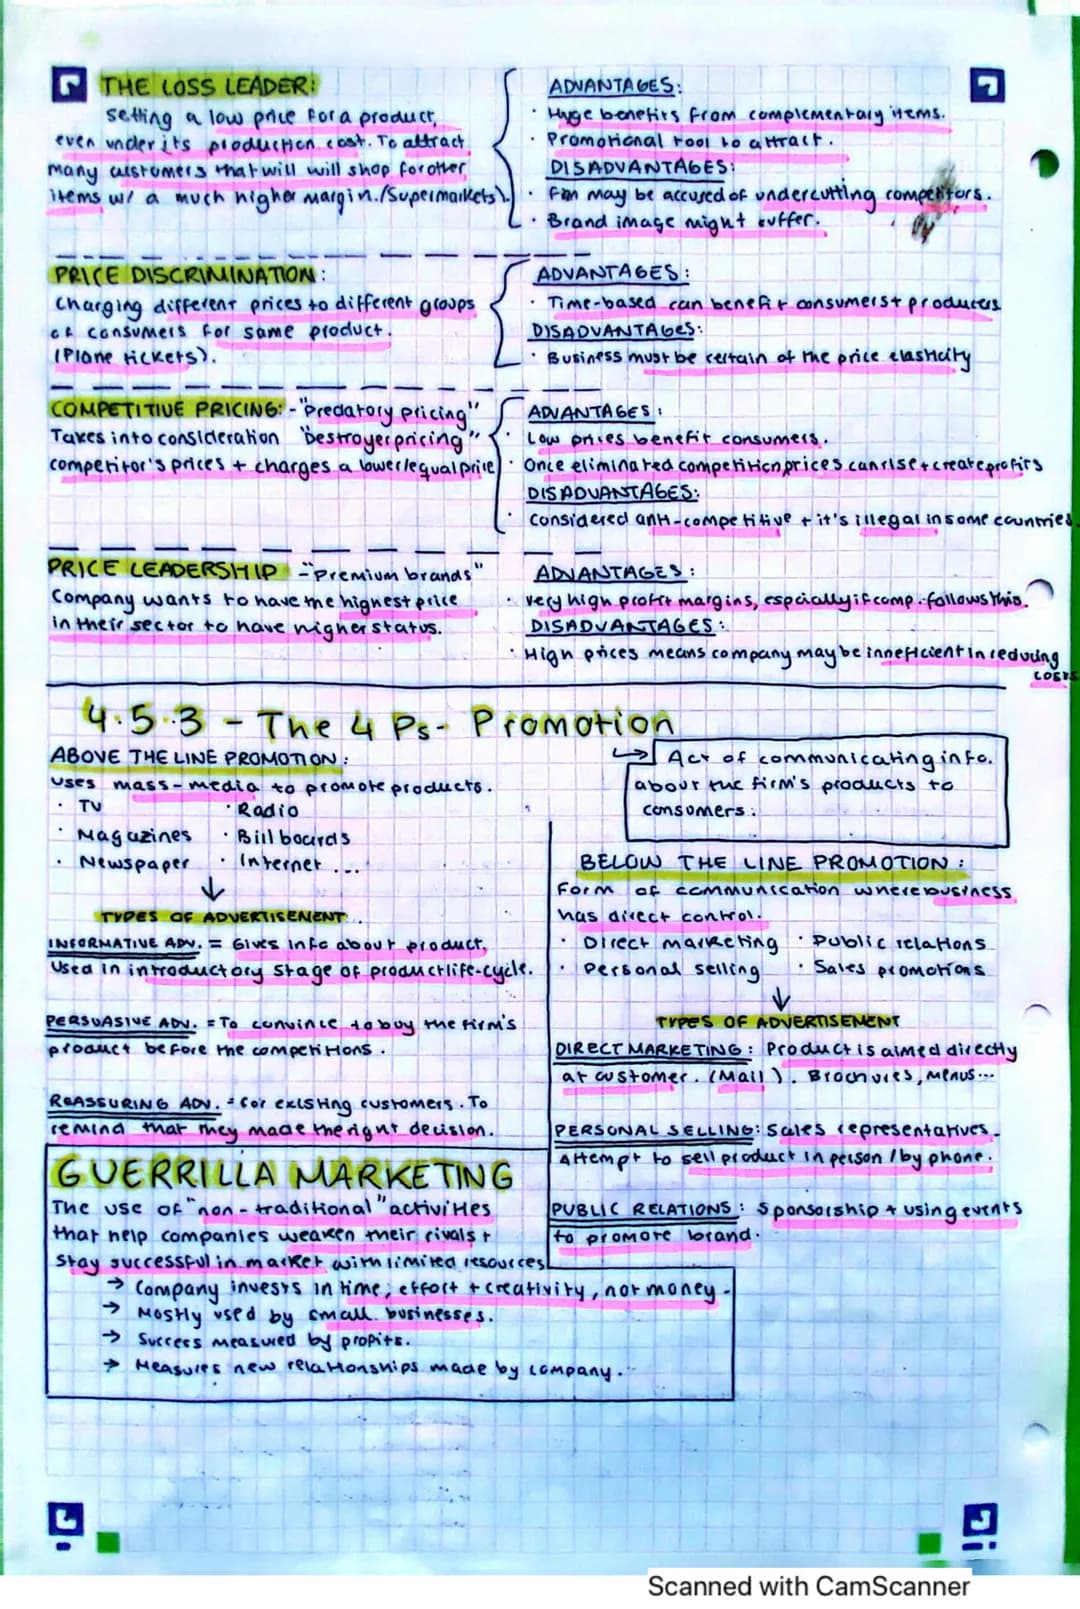 THE LOSS LEADER:
Setting a low price for a product,
even under its production cost. To attract
many customers that will will shop for other
items w/ a much higher margin. (Supermarkets).
ADVANTAGES:
· Huge benefits from complementary items.
· Promotional tool to attract.
DISADVANTAGES:
· Firm may be accused of undercutting competitors.
· Brand image might suffer.
PRICE DISCRIMINATION:
Charging different prices to different groups
of consumers for same product.
(Plane tickets).
ADVANTAGES:
· Time-based can benefit consumers + producers
DISADVANTAGES:
· Business must be certain of the price elasticity
COMPETITIVE PRICING: - "Predatory pricing"
Takes into consideration "Destroyer pricing"
competitor's prices + charges a lower/equal price
ADVANTAGES:
· Low prices benefit consumers.
· Once eliminated competition, prices can rise + create profits
DISADVANTAGES:
· Considered anti-competitive + it's illegal in some countries
PRICE LEADERSHIP - "Premium brands"
Company wants to have the highest price
in their sector to have higher status.
ADVANTAGES:
· Very high profit margins, espcially if comp. follows this.
DISADVANTAGES:
· High prices means company may be innefficient in reducing
costs
4.5.3 - The 4 Ps - Promotion
→ Act of communicating info.
about the firm's products to
consumers.
ABOVE THE LINE PROMOTION:
Uses mass-media to promote products.
· TV · Radio
· Magazines · Billboards
· Newspaper · Internet ...
↓
TYPES OF ADVERTISEMENT
INFORMATIVE ADV. = Gives info about product.
Used in introductory stage of product life-cycle.
PERSUASIVE ADV. = To convince to buy the firm's
product before the competitions.
REASSURING ADV. = For existing customers. To
remind that they made the right decision.
BELOW THE LINE PROMOTION:
Form of communication where business
has direct control.
· Direct marketing · Public relations
· Personal selling · Sales promotions
↓
TYPES OF ADVERTISEMENT
DIRECT MARKETING: Product is aimed directly
at customer. (Mail). Brochures, Menus...
PERSONAL SELLING: Sales representatives
Attempt to sell product in person / by phone.
PUBLIC RELATIONS: Sponsorship + using events
to promote brand.
GUERRILLA MARKETING
The use of "non-traditional" activities
that help companies weaken their rivals +
stay successful in market with limited resources
→ Company invests in time, effort + creativity, not money.
→ Mostly used by small businesses.
→ Success measured by profits.
→ Measures new relationships made by company.
Scanned with CamScanner